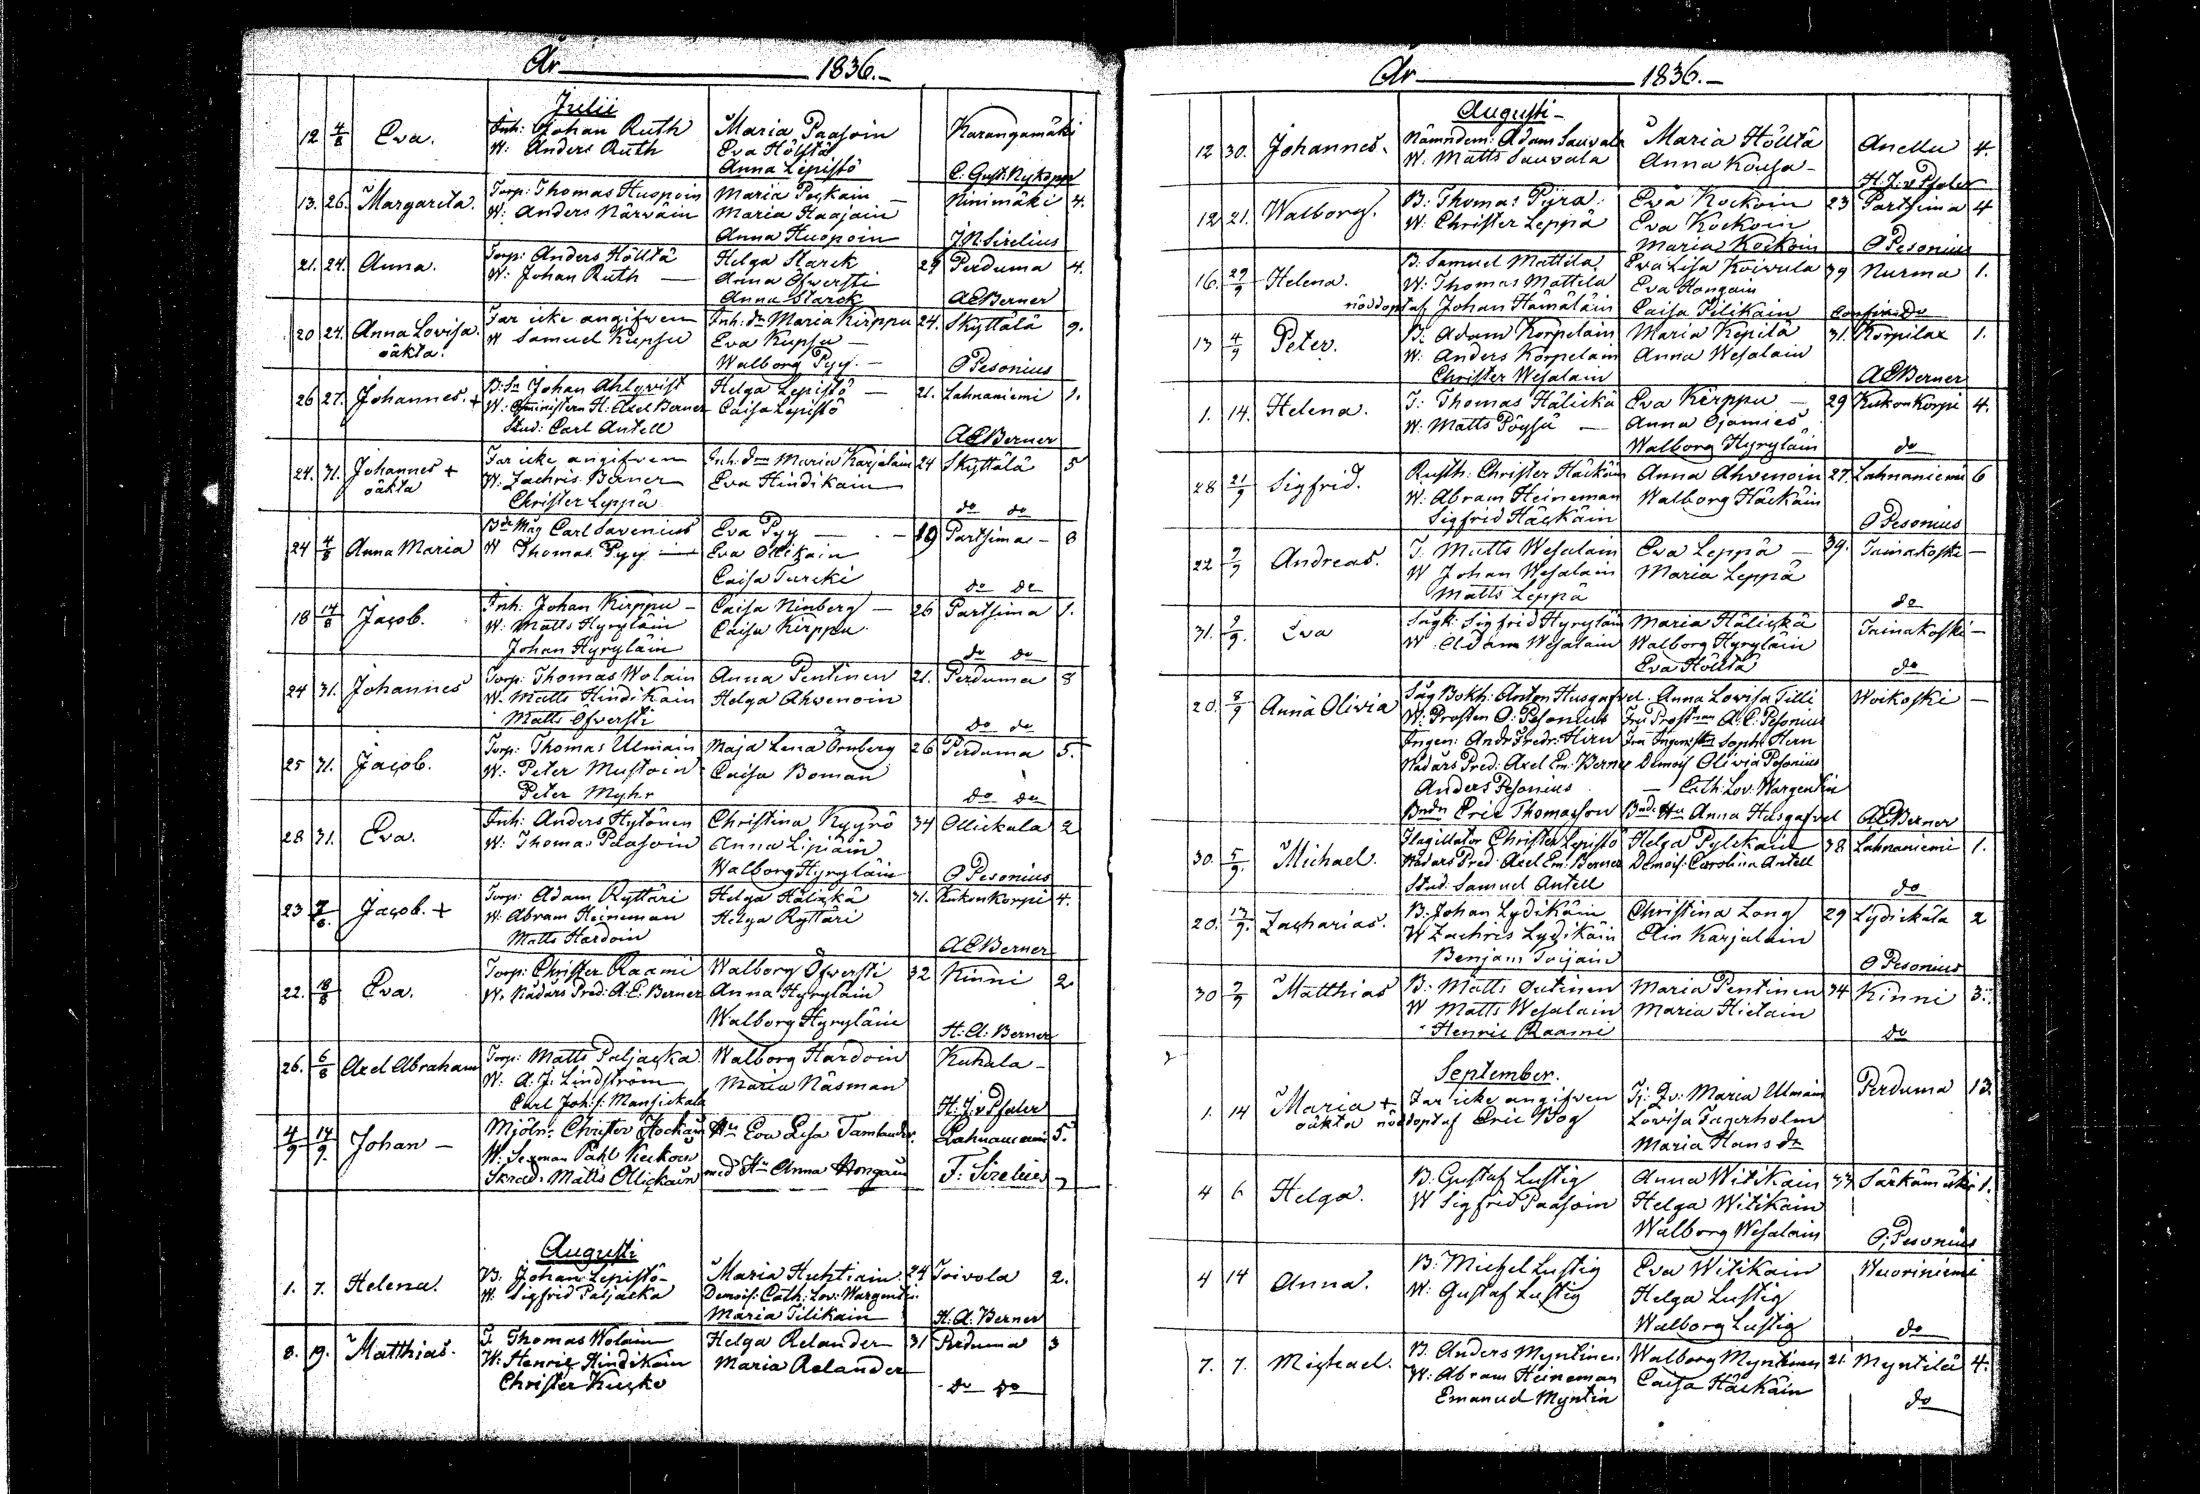 År 1836.
Julii
12 4/8 Eva. Inh: Johan Ruth Maria Paasoin Karangamäki
W: Anders Ruth Eva Höltä
Anna Lepistö C. Gust: Nykopp
13. 26. Margareta. Torp: Thomas Huopoin Maria Paskain Ninimäki 4.
W: Anders Närväin Maria Haajain
Anna Huopoin J N Sirelius
21. 24. Anna. Torp: Anders Hölttä Helga Starck 29 Perduma 4.
W: Johan Ruth Anna Öfwersti
Anna Starck A E Berner
20 24. Anna Lovisa Far icke angifwen Inh: dr Maria Kirppu 24. Skyttälä 9.
oäkta. W Samuel Kupsu Eva Kupsu
Walborg Pyy. O Pesonius
26 27. Johannes. + B: Sn Johan Ahlqvist Helga Lepistö 21. Lahnaniemi 1.
W: Comministern H: Axel Berner Caisa Lepistö
Stud: Carl Antell A E Berner
24. 31. Johannes + Far icke angifwen Inh: dr Maria Karjalain 24 Skyttälä 5
oäkta W. Zachris Berner Eva Hindikain
Christer Leppä do do
24 4/8 Anna Maria Bde Måg Carl Savenius Eva Pyy 19 Partsima 8
W Thomas Pyy Eva Ollikain
Caisa Turcki do do
18 14/8 Jacob. Inh: Johan Kirppu Caisa Ninberg 26 Partsima 1.
W: Matts Hyryläin Caisa Kirppu
Johan Hyryläin do do
24 31. Johannes Torp: Thomas Wolain Anna Pentinen 21. Perduma 8
W. Matts Hindikain Helga Ahwenoin
Matts Öfversti do do
25 31. Jacob. Torp: Thomas Ulmain Maja Lena Örnberg 26 Perduma 5.
W: Peter Mustoin Caisa Boman
Peter Myhr do do
28 31. Eva. Inh: Anders Hytönen Christina Kyyrö 34 Ollickala 2
W: Thomas Paasoin Anna Lipiäin
Walborg Hyryläin O Pesonius
23 7/8. Jacob. + Torp: Adam Ryttäri Helga Hälickä 31. Kukonkorpi 4.
W: Abram Heineman Helga Ryttäri
Matts Hardoin A E Berner
22. 18/8 Eva. Torp: Christer Raami Walborg Öfwersti 32 Kinni 2
W. Nådårs Pred: A: E. Berner Anna Hyryläin
Walborg Hyryläin H: A: Berner
26. 6/8 Axel Abraham Torp: Matts Paljacka Walborg Hardoin Kukala
W: A: J: Lindström Maria Näsman
Carl Joh: f: Mansickala H: J: v Pfaler
4/9 14/9. Johan Mjöln: Christer Hu Eva Lisa Tamlander. Lahnaniemi 5.
W: Påhl Kuckow med Hu Anna Hongain
Skräd: Matts Ollickain F: Sirelius
Augusti
1. 7. Helena. B: Johan Lepistö Maria Huhtiain 24 Toivola 2.
W. Sigfrid Paljacka Demois: Cath: Lov: Wargentin
Maria Tilikain H. A: Berner
8. 19. Matthias. T. Thomas Wolain Helga Relander 31 Perduma 3
W: Henric Hindikain Maria Relander
Christer Kucko do do
År 1836.
Augusti
12 30. Johannes. Nämndem: Adam Sauvala Maria Hölttä Anella 4.
W. Matts Sauvala Anna Kousa
H: J: v Pfaler
12 21. Walborg. B: Thomas Pyra Eva Kockoin 23 Partsima 4
W: Christer Leppä Eva Kockoin
Maria Kockoin O Pesonius
16. 29/9 Helena. B. Samuel Mattila Eva Lisa Koivula 39 Nurma 1.
W. Thomas Mattila Eva Hongain
nöddopt af Johan Hämäläin Caisa Tilikain do
13 4/9 Peter. B. Adam Korpelain Maria Kepilä 31. Korpilax 1.
W: Anders Korpelain Anna Wesalain
Christer Wesalain A E Berner
1. 14. Helena. T: Thomas Hälickä Eva Kirppu 29 Kukonkorpi 4.
W: Matts Pöysä Anna Ojamies
Walborg Hyryläin do
28 21/9 Sigfrid. Rusth: Christer Häckäin Anna Ahvenoin 27. Lahnaniemi 6
W: Abram Heineman Walborg Häckäin
Sigfrid Häckäin O Pesonius
22 9/9 Andreas. T. Matts Wesalain Eva Leppä 39. Tainakoski
W Johan Wesalain Maria Leppä
Matts Leppä do
31. 9/9. Eva Sågk: Sigfrid Hyryläin Maria Hälickä Tainakoski
W. Adam Wesalain Walborg Hyryläin
Eva Hölttä do
20. 8/9 Anna Olivia Såg Bokh: Anton Husgafvel. Anna Lovisa Tilli Woikoski
W: Prosten O: Pesonius Fru Prostinan A: C: Pesonius
Ingen: Andr: Fredr: Hirn Fru Ingen: Soph: Hirn
Nådårs Pred: Axel Em: Berner Demois Olivia Pesonius
Anders Pesonius Cath: Lov: Wargentin
Bndn Eric Thomasson Bnd: Hu Anna Husgafvel A E Berner
30. 5/9. Michael. Flagillator Christer Lepistö Helga Pylckain 38 Lahnaniemi 1.
Nådårs Pred: Axel Em: Berner Demois: Carolina Antell
Stud: Samuel Antell do
20. 17/9. Zacharias. B: Johan Lydikäin Christina Long 29 Lydickälä 2
W Zachris Lydikäin Elin Karjalain
Benjam Toijain O Pesonius
30 9/9 Matthias B: Matts Outinen Maria Pentinen 34 Kinni 3.
W Matts Wesalain Maria Hietain
Henric Raami do
September.
1. 14 Maria + Far icke angifven Tj: Qv: Maria Ulmain Perduma 13
oäkta nöddopt af Eric Bog Lovisa Fagerholm
Maria Hans dr
4 6 Helga. B. Gustaf Lustig Anna Witikain 33 Särkämäki 1.
W Sigfrid Paasoin Helga Witikain
Walborg Wesalain O: Pesonius
4 14 Anna. B: Michel Lustig Eva Witikain Wuoriniemi
W: Gustaf Lustig Helga Lustig
Walborg Lustig do
7. 7. Michael. B. Anders Myntinen Walborg Myntinen 21. Myntilä 4.
W: Abram Heineman Caisa Häckäin
Emanuel Myntin do